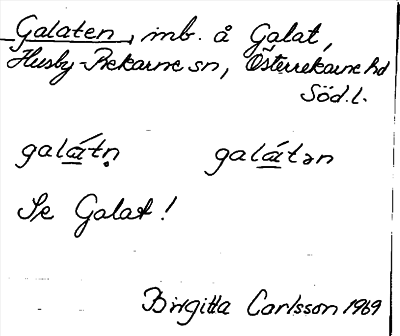 Galaten, inb. å Galat,
Husby-Rekarne sn, Österrekarne hd
Söd.l.
galátn̥ galátən
Se Galat!
Birgitta Carlsson 1969